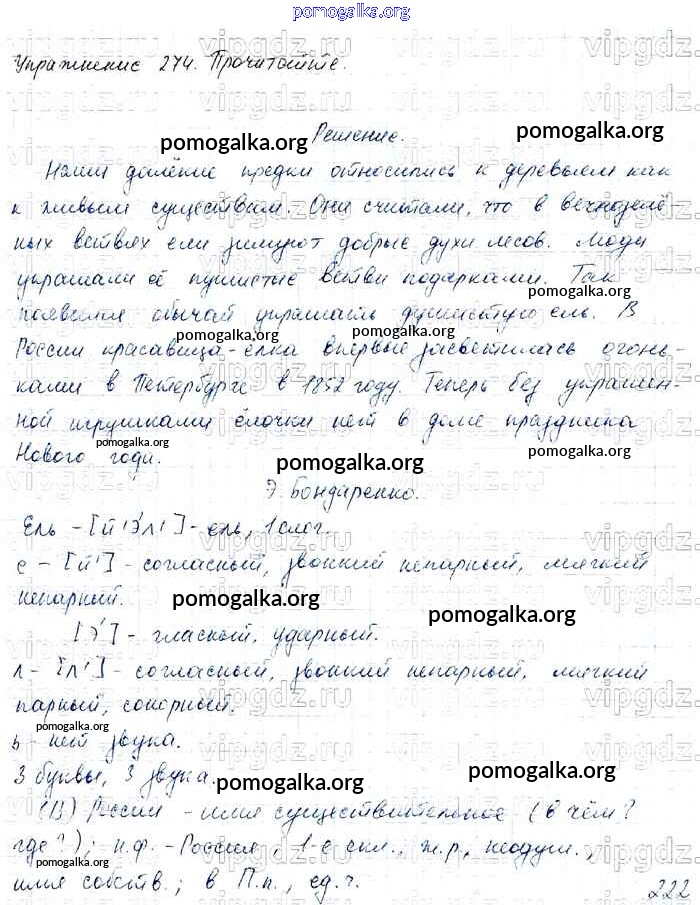 pomogalka.org
Упражнение 274. Прочитайте.
Решение.
pomogalka.org pomogalka.org
Наши далёкие предки относились к деревьям как
к живым существам. Они считали, что в вечнозелё-
ных ветвях ели зимуют добрые духи лесов. Люди
украшали её пушистые ветви подарками. Так
pomogalka.org
появился обычай украшать душистую ель. В
pomogalka.org pomogalka.org
России красавица-ёлка впервые засветилась огонь-
ками в Петербурге в 1852 году. Теперь без украшен-
ной игрушками ёлочки нет в доме праздника
pomogalka.org
Нового года.
pomogalka.org
Э. Бондаренко.
Ель - [й'э́л'] - ель, 1 слог.
е - [й'] - согласный, звонкий непарный, мягкий
непарный.
pomogalka.org pomogalka.org
[э́] - гласный, ударный.
л - [л'] - согласный, звонкий непарный, мягкий
парный, сонорный.
pomogalka.org
ь - нет звука.
3 буквы, 3 звука.
pomogalka.org
(В) России - имя существительное (в чём?
pomogalka.org
где?); н.ф. - Россия, 1-е скл., ж.р., неодуш.,
имя собств.; в П.п., ед.ч.
222